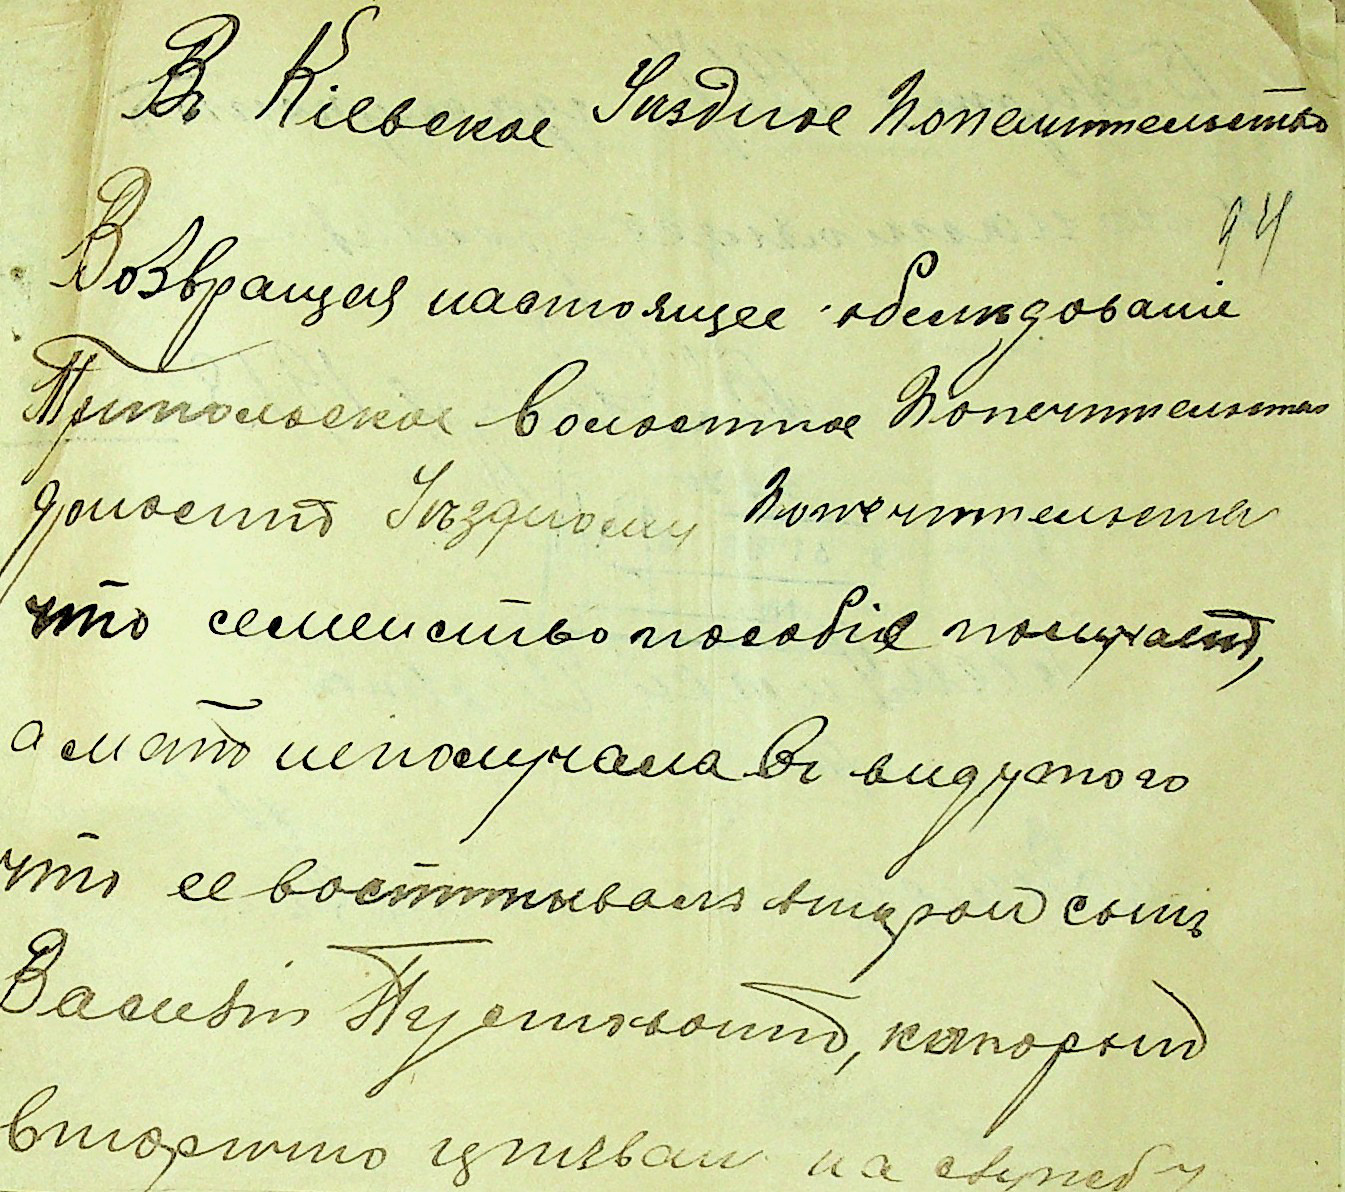 Въ Кіевское Уѣздное Попечительство
94
Возвращая настоящее обслѣдованіе
Трипольское Волостное Попечительство
доноситъ Уѣздному Попечительству
что семейство пособіе получаетъ,
а мать неполучала Въ виду того
что ее воспитывалъ второй сынъ
Василій Пустовойтъ, который
вторично призван на службу